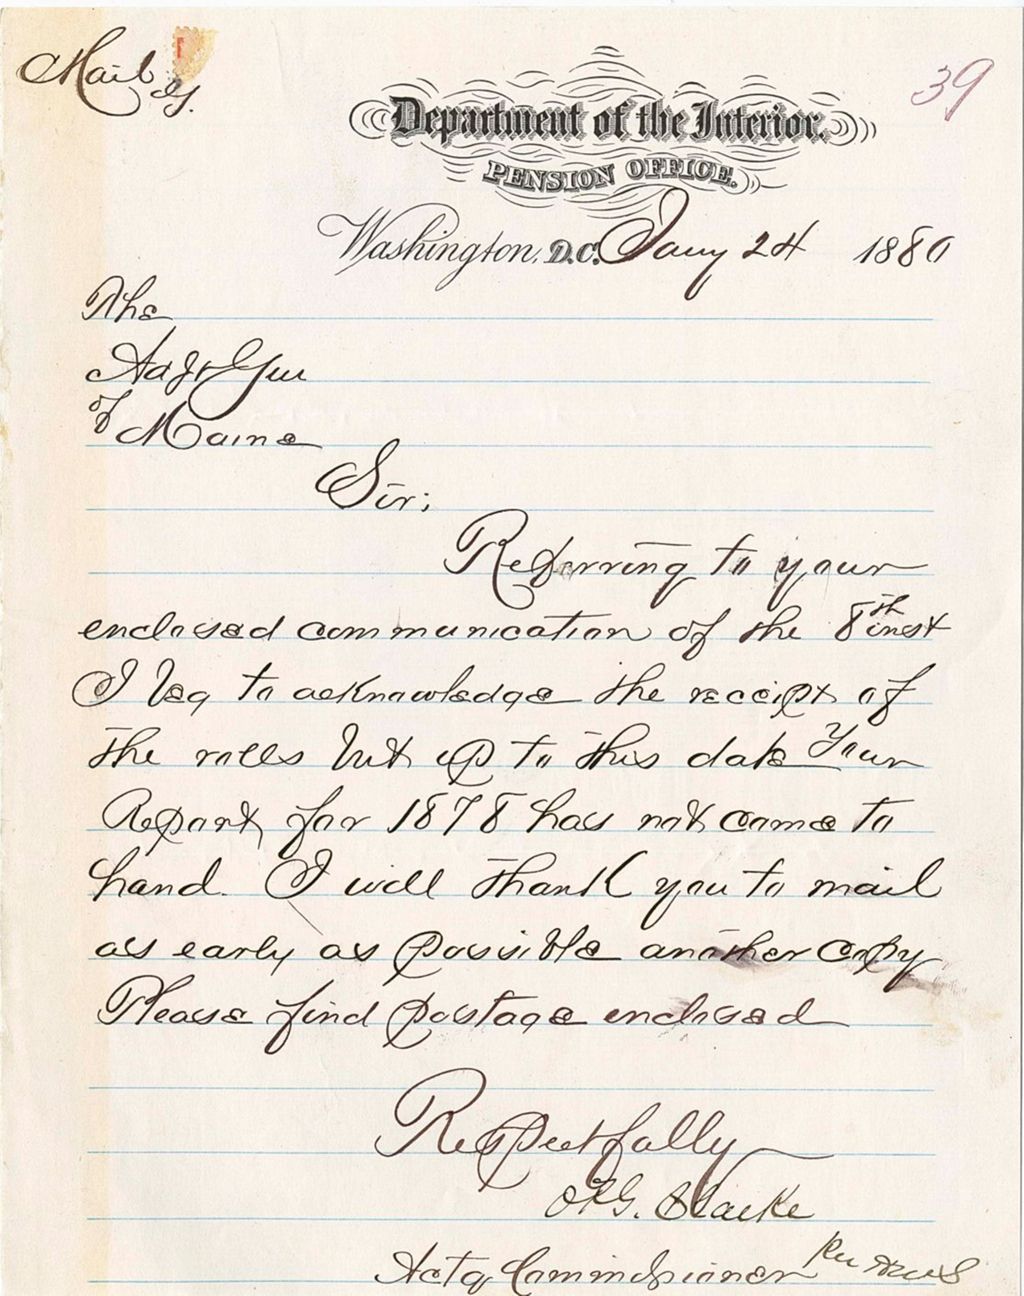 Mail
39
Department of the Interior.
PENSION OFFICE.
Washington, D.C. Jany 24 1880
The
Adjt Gen
of Maine
Sir;
Referring to your
enclosed communication of the 8th inst
I beg to acknowledge the receipt of
the rolls but up to this date Your
Report for 1878 has not come to
hand. I will thank you to mail
as early as possible another copy
Please find postage enclosed
Respectfully
OPG. Clarke
Actg Commissioner